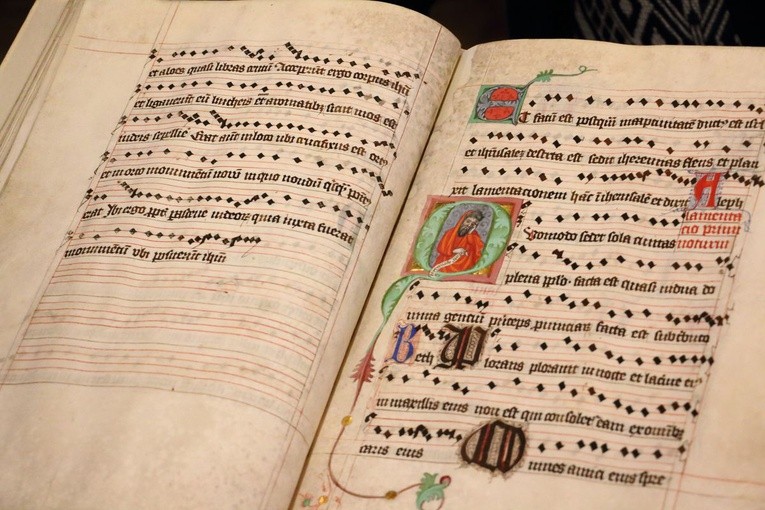 et aloes quasi libras centū Acceperūt ergo corpus ihū
et ligauerūt eū lintheis et aromatibȝ sicut mos est
iudeis sepelire Erat autē in loco ubi crucifixus est ortꝰ
et in orto monumentū nouū in quo nondū quisq̄ posi
erat Ibi ergo ppt̄ pasceue iudeoꝝ quia iuxta fuerat
monumentū ubi posuerūt ihm
Et factū est postquā in captiuitatē duct est isrl
et ihrusalez deserta est sedit iheremias flens et plan
xit lamentacionem hāc ī iherusalē et dixit Aleph
lamenta
cio primi
nocturni
Quomodo sedet sola ciuitas
plena pplo facta est quasi uidua do
mina genciū princeps prouinciaꝝ facta est sub tributo
Beth Plorans plorauit in nocte et lacrīe eiꝰ
in maxillis eius non est qui consoletᷣ eam ex omnibꝫ
caris eius Omnes amici eius spre